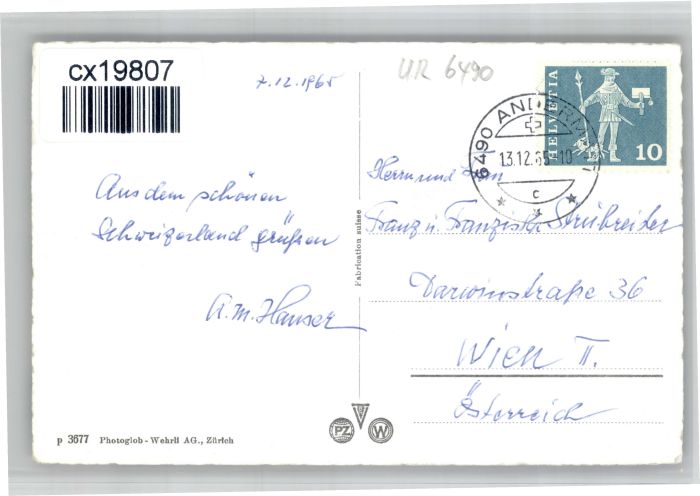 cx19807
7.12.1965
UR 6490
HELVETIA
10
6490 ANDERM
13.12.65-10
c
Aus dem schönen
Schweizerland grüßen
A.M. Hauser
Herrn und
Franz u. Franziska Strubreiter
Darwinstraße 36
Wien II.
Österreich
Fabrication suisse
PZ
W
p 3677 Photoglob - Wehrli AG., Zürich